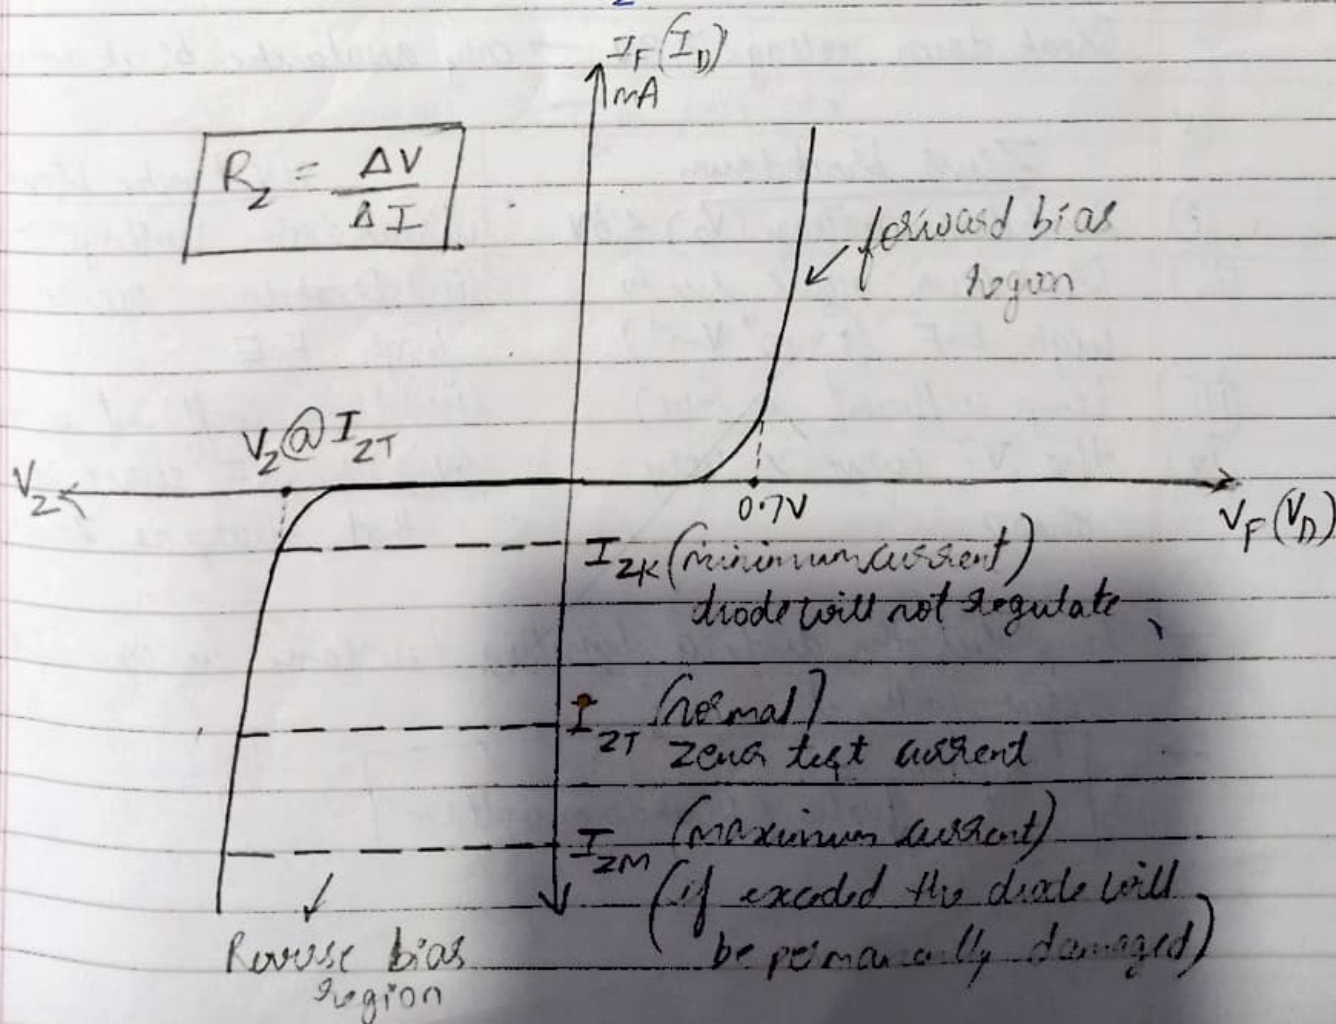 I_F (I_D)
mA
R_Z = ΔV / ΔI
forward bias
region
V_Z @ I_ZT
V_Z
0.7V
V_F (V_D)
I_ZK (minimum current)
diode will not regulate
I_ZT (normal)
zener test current
I_ZM (maximum current)
(if exceded the diode will
be permanally damaged)
Reverse bias
region